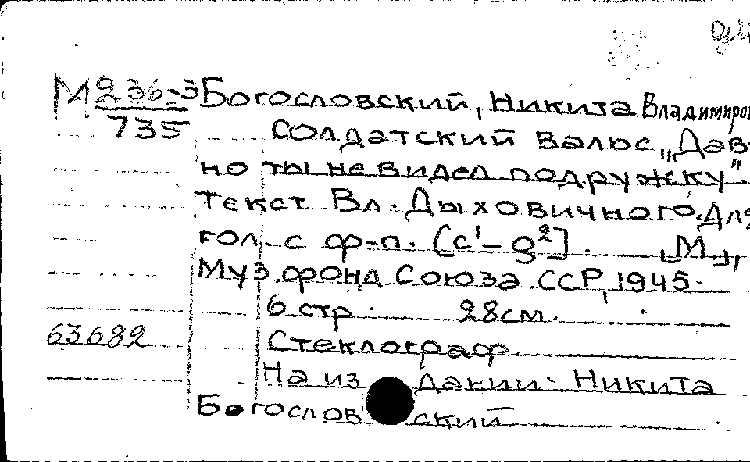 М 236-3 Богословский, Никита Владимиров
735 Солдатский вальс „Дав-
но ты не видел подружку".
Текст Вл. Дыховичного. Для
гол. с ф-п. [c¹–g²]. „М.",
Муз. фонд Союза ССР, 1945.
6 стр. 28 см.
63682 Стеклограф.
На издании: Никита
Богословский